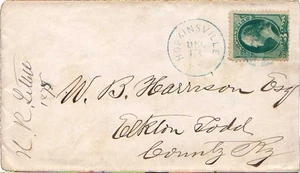 HOPKINSVILLE
DEC
W. B. Harrison Esq
Elkton Todd
County Ky
1878